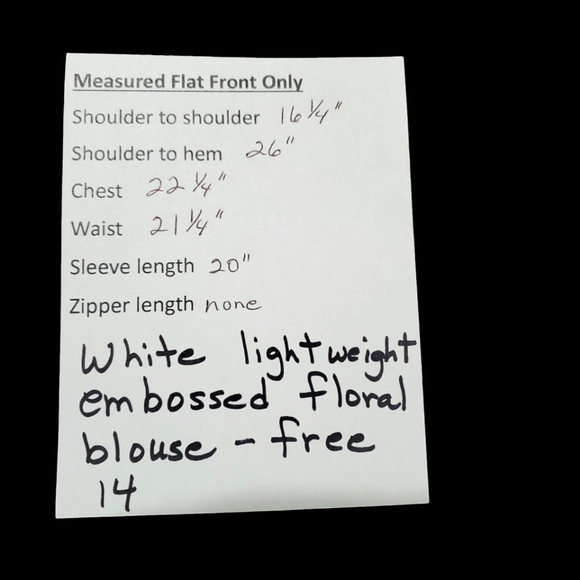 Measured Flat Front Only
Shoulder to shoulder 16 1/4"
Shoulder to hem 26"
Chest 22 1/4"
Waist 21 1/4"
Sleeve length 20"
Zipper length none
White lightweight
embossed floral
blouse - free
14